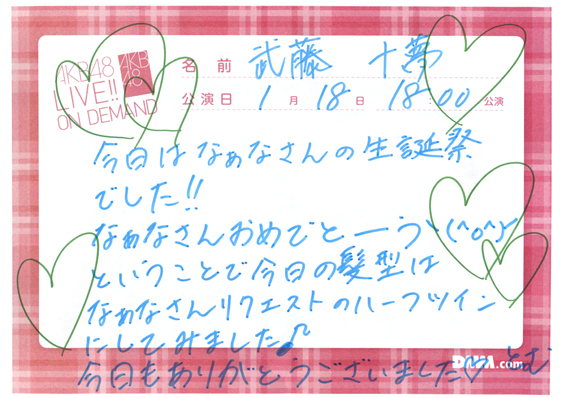 AKB48
LIVE!!
ON DEMAND
AKB
48
名前 武藤 十夢
公演日 1月18日 18:00公演
今日はなぁなさんの生誕祭
でした!!
なぁなさんおめでとーうヽ(^o^)ノ
ということで今日の髪型は
なぁなさんリクエストのハーフツイン
にしてみました♪
今日もありがとうございました♡ とむ
DMM.com